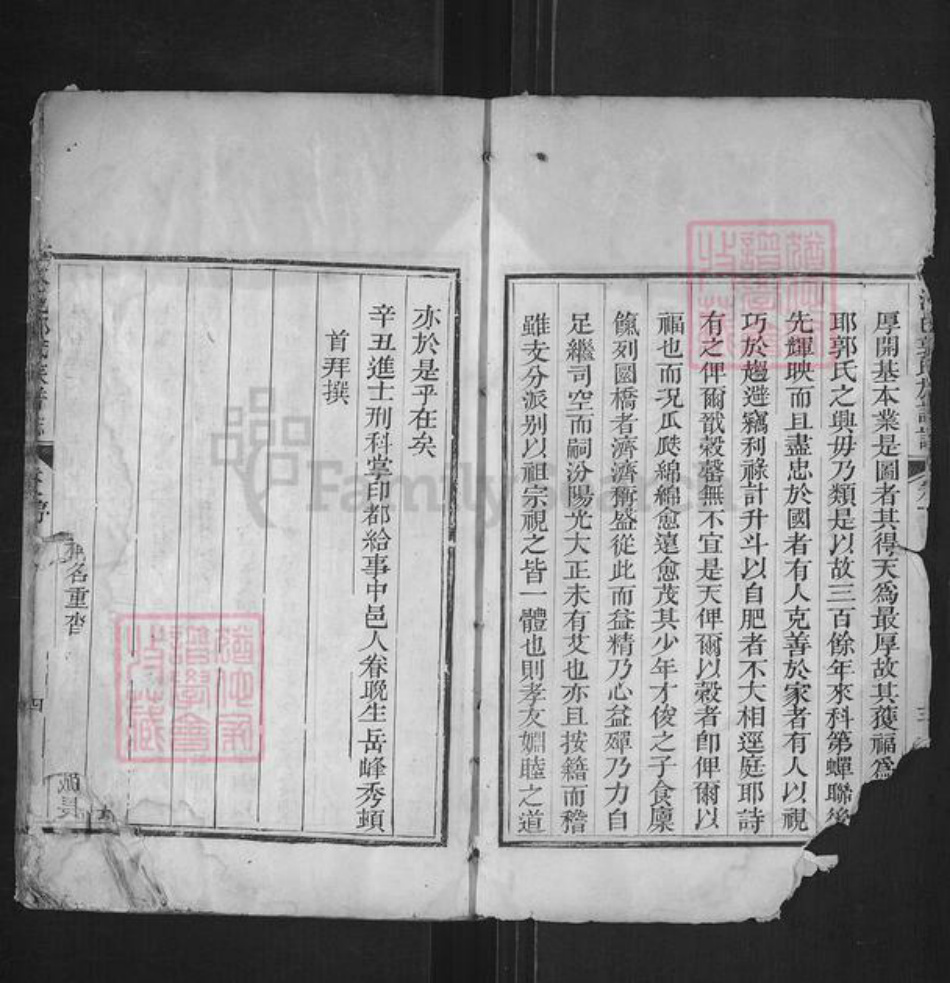 厚開基本業是圖者其得天爲最厚故其獲福爲
耶郭氏之興毋乃類是以故三百餘年來科第蟬聯後
先輝映而且盡忠於國者有人克善於家者有人以視
巧於趨避竊利祿計升斗以自肥者不大相逕庭耶詩
有之俾爾戩穀罄無不宜是天俾爾以穀者卽俾爾以
福也而況瓜瓞綿綿愈遠愈茂其少年才俊之子食廩
餼列圜橋者濟濟稱盛從此而益精乃心益殫乃力自
足繼司空而嗣汾陽光大正未有艾也亦且按籍而稽
雖支分派别以祖宗視之皆一體也則孝友婣睦之道
亦於是乎在矣
辛丑進士刑科掌印都給事中邑人眷晚生岳峰秀頓
首拜撰
郭氏族譜志
四
名重
FamilySearch
譜學會
收藏